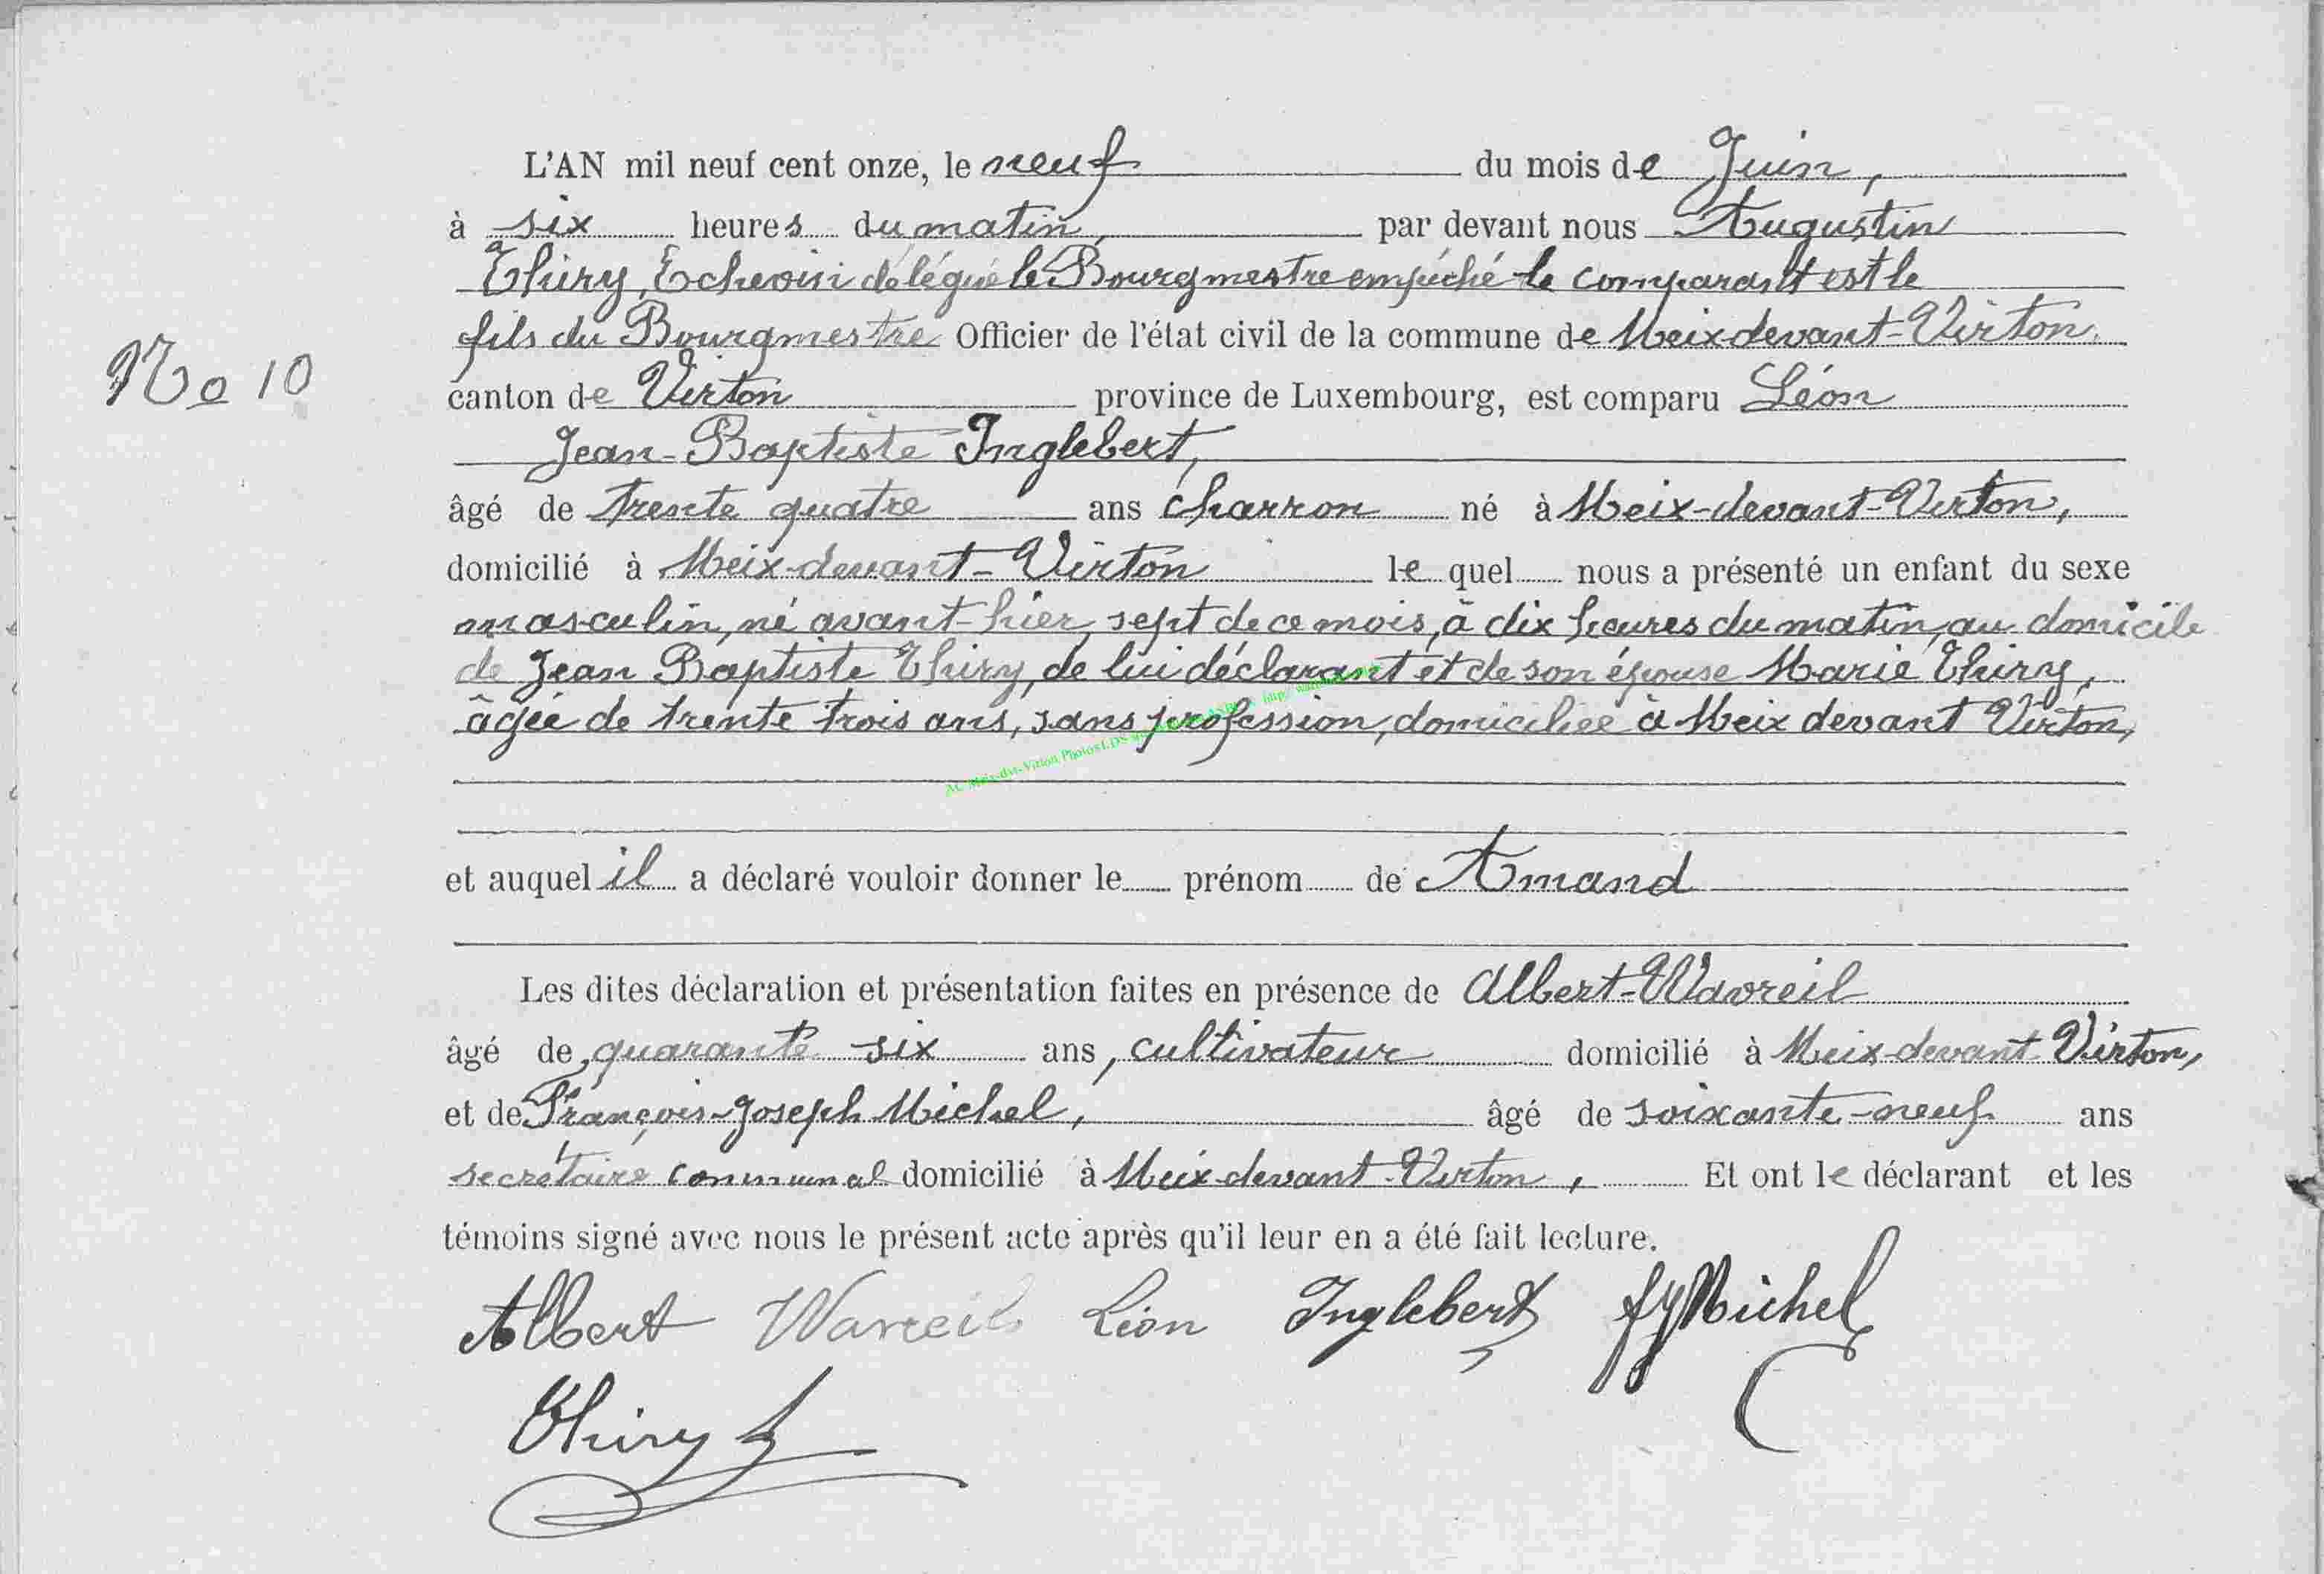 L'AN mil neuf cent onze, le neuf du mois de Juin,
à six heures du matin, par devant nous Augustin
Thiry, Echevin délégué le Bourgmestre empêché le comparant est le
fils du Bourgmestre Officier de l'état civil de la commune de Meix-devant-Virton.
No 10
canton de Virton province de Luxembourg, est comparu Léon
Jean-Baptiste Inglebert,
âgé de trente quatre ans charron né à Meix-devant-Virton,
domicilié à Meix-devant-Virton le quel nous a présenté un enfant du sexe
masculin, né avant-hier, sept de ce mois, à dix heures du matin, au domicile
de Jean Baptiste Thiry, de lui déclarant et de son épouse Marie Thiry,
âgée de trente trois ans, sans profession, domiciliée à Meix devant Virton,
AC Meix-dvt-Virton Photos LDS
et auquel il a déclaré vouloir donner le prénom de Amand
Les dites déclaration et présentation faites en présence de Albert-Wavreil
âgé de quarante six ans, cultivateur domicilié à Meix-devant Virton,
et de François-Joseph Michel, âgé de soixante-neuf ans
secrétaire communal domicilié à Meix-devant-Virton, Et ont le déclarant et les
témoins signé avec nous le présent acte après qu'il leur en a été fait lecture.
Albert Wavreil Léon Inglebert fJMichel
Thiry